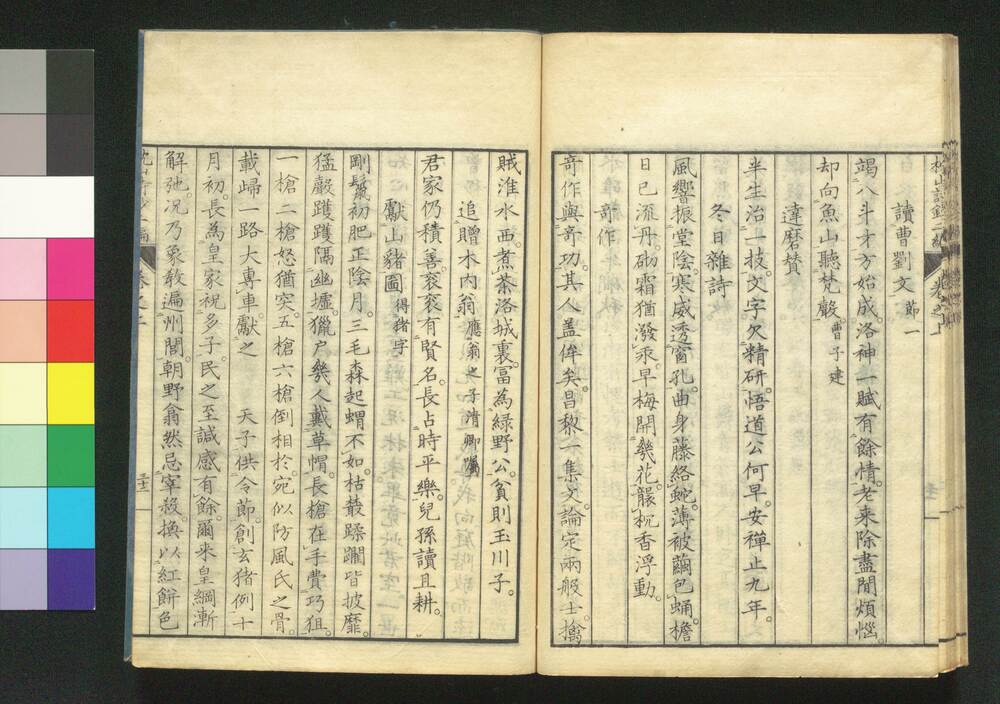 讀曹劉文 節一
竭八斗才方始成。洛神一賦有餘情。老来除盡閒煩惱。
却向魚山聽梵聲。曹子建
達磨賛
半生治一技。文字欠精研。悟道公何早。安禅止九年。
冬日雜詩
風響振堂陰。寒威透窗孔。曲身藤絡蛇。薄被繭包蛹。檐
日已流丹。砌霜猶潑汞。早梅開幾花。龖枕香浮動。
竒作
竒作與竒功。其人盖侔矣。昌黎一集文。論定兩般士。擒
賊淮水西。煮茶洛城裏。冨為緑野公。貧則玉川子。
追贈木内翁 應翁之子清卿囑
君家仍積善。衮衮有賢名。長占時平樂。兒孫讀且耕。
獻山豬圖 得豬字
剛鬣初肥正陰月。三毛森起蝟不如。枯叢蹂躙皆披靡。
猛嚴躩躩隔幽墟。獵户幾人戴草帽。長槍在手費巧狙。
一槍二槍怒猶突。五槍六槍倒相於。宛似防風氏之骨。
載歸一路大専車。獻之 天子供令節。創玄猪例十
月初。長為皇家祝多子。民之至諴感有餘。爾来皇綱漸
解弛。况乃象教遍州閭。朝野翕然忌宰殺。換以紅餅色